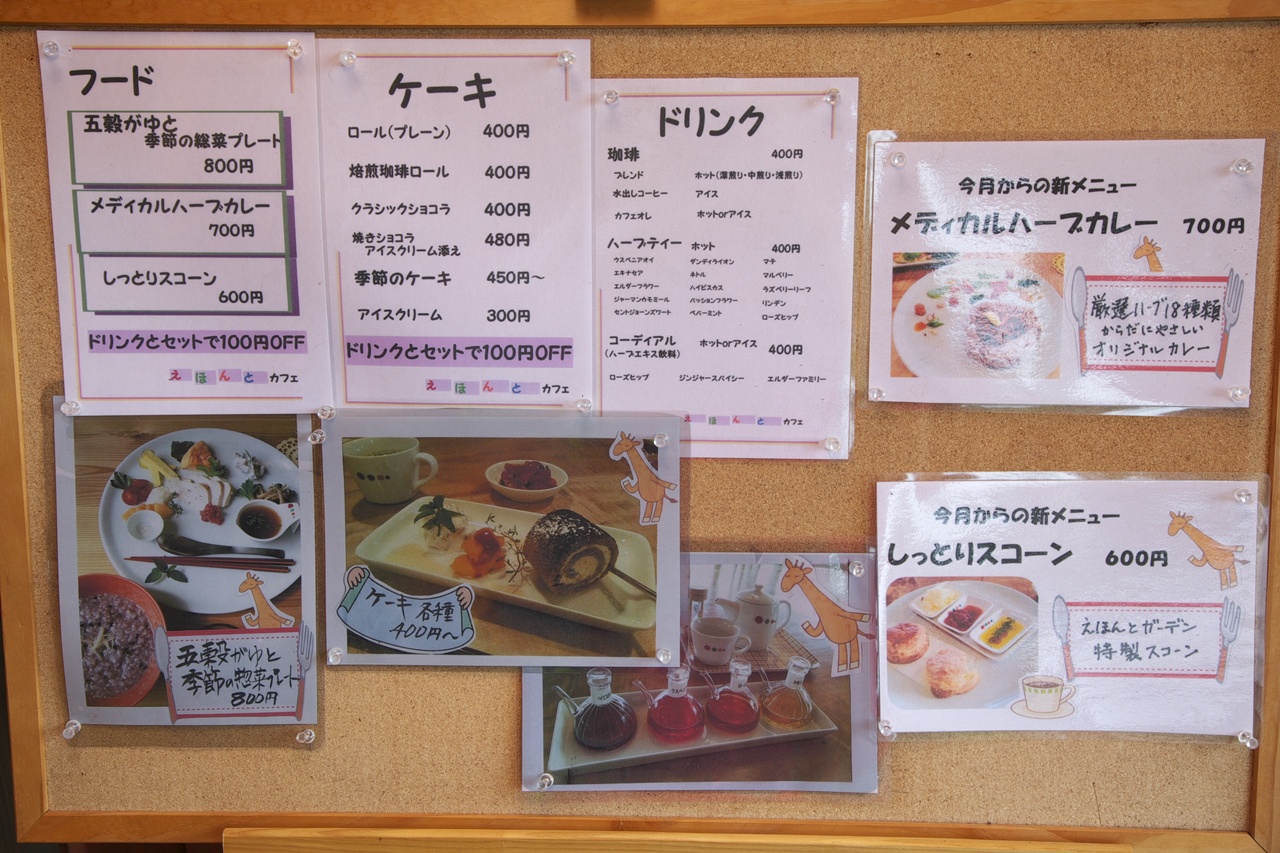 フード
五穀がゆと
季節の総菜プレート
800円
メディカルハーブカレー
700円
しっとりスコーン
600円
ドリンクとセットで100円OFF
えほんとカフェ
ケーキ
ロール(プレーン) 400円
焙煎珈琲ロール 400円
クラシックショコラ 400円
焼きショコラ
アイスクリーム添え 480円
季節のケーキ 450円～
アイスクリーム 300円
ドリンクとセットで100円OFF
えほんとカフェ
ドリンク
珈琲 400円
ブレンド ホット(深煎り・中煎り・浅煎り)
水出しコーヒー アイス
カフェオレ ホットorアイス
ハーブティー ホット 400円
ウスベニアオイ ダンディライオン マテ
エキナセア ネトル マルベリー
エルダーフラワー ハイビスカス ラズベリーリーフ
ジャーマンカモミール パッションフラワー リンデン
セントジョーンズワート ペパーミント ローズヒップ
コーディアル ホットorアイス 400円
(ハーブエキス飲料)
ローズヒップ ジンジャースパイシー エルダーファミリー
えほんとカフェ
今月からの新メニュー
メディカルハーブカレー 700円
厳選ハーブ18種類
からだにやさしい
オリジナルカレー
五穀がゆと
季節の惣菜プレート
800円
ケーキ各種
400円～
今月からの新メニュー
しっとりスコーン 600円
えほんとガーデン
特製スコーン